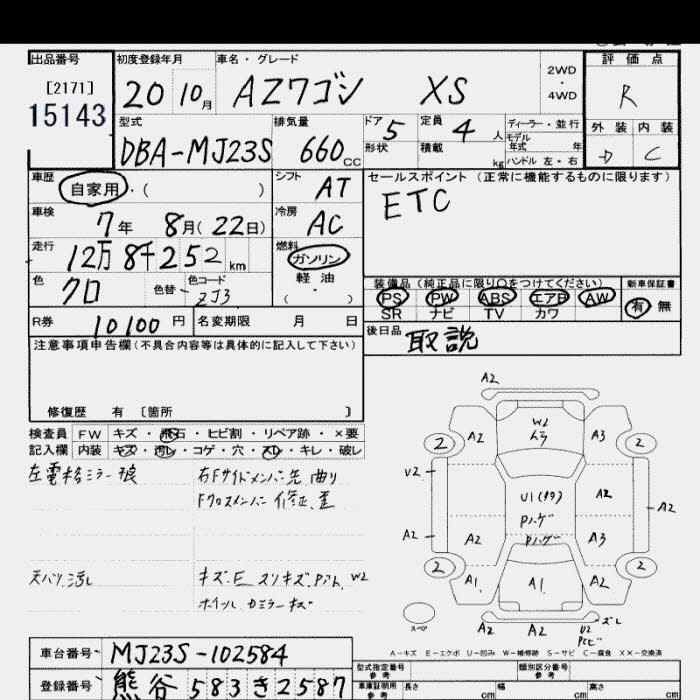 出品番号 初度登録年月 車名・グレード 評価点
[2171] 15143 20 10月 AZワゴン XS 2WD・4WD R
型式 排気量 ドア 5 定員 4人 ディーラー・並行 外装 内装
DBA-MJ23S 660CC 形状 積載 kg モデル年式 年 ハンドル 左・右 D C
車歴 自家用・( ) シフト AT セールスポイント (正常に機能するものに限ります)
車検 7年 8月(22日) 冷房 AC ETC
走行 12万8千252km 燃料 ガソリン
色 クロ 色替 色コード ZJ3 軽油・( )
装備品 (純正品に限り○をつけてください) 新車保証書
PS PW ABS エアB AW 有 無
SR ナビ TV カワ
R券 10100円 名変期限 月 日
後日品 取説
注意事項申告欄 (不具合内容等は具体的に記入して下さい)
修復歴 有 [箇所 ]
検査員 FW キズ・飛石・ヒビ割・リペア跡・×要
記入欄 内装 キズ・汚レ・コゲ・穴・スレ・キレ・破レ
左電格ミラー
右Fサイドメンバー先曲り
Fクロスメンバー修正、歪
天バリ汚レ
キズ、E スリキズ W2
ホイル ドミラーキズ
A2
W2
A2 A3
2 2
V2 U1(タワ) A2 A2
Pハゲ
A2 A2 Pハゲ A3
2 2
A1 A1 A2
スペア A2 A2 U2 ズレ
A-キズ E-エクボ U-凹み W-補修跡 S-サビ C-腐食 XX-交換済
車台番号 MJ23S-102584
型式指定番号 参考 類別区分番号 参考
登録番号 熊谷 583 き 2587
車庫証明用 参考 長さ cm 幅 cm 高さ cm